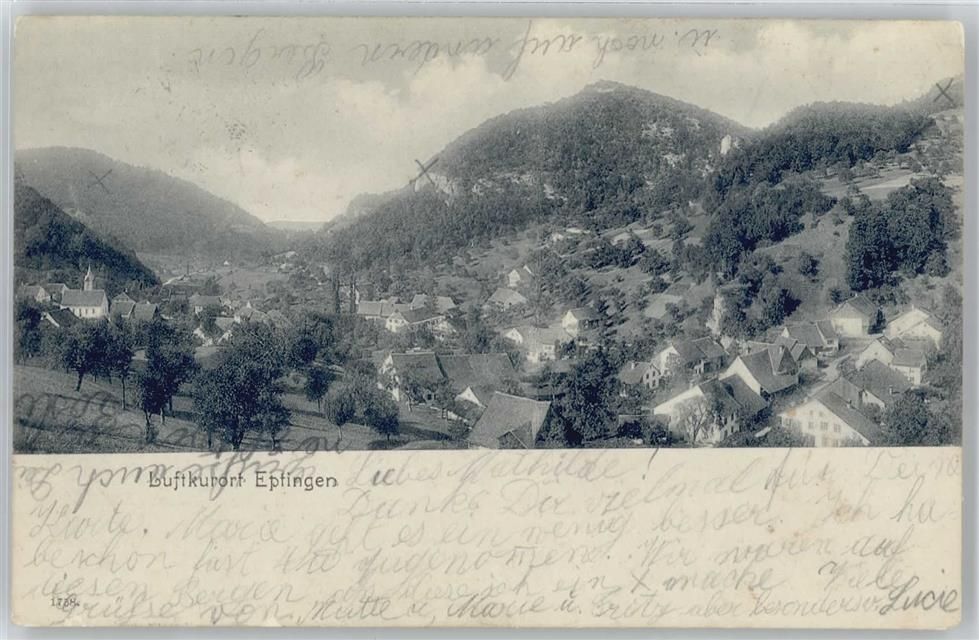 u. noch auf andern Bergen
Luftkurort Eptingen
Liebes Mathilde!
Danke Dir vielmal für Deine
Karte. Marie geht es ein wenig besser. Ich ha-
be schon fast 4 U zugenomene. Wir waren auf
diesen Bergen wo ich ein X mache Viele
Grüsse von Mutte u. Marie u. Fritz aber besonders v. Lucie
1738.